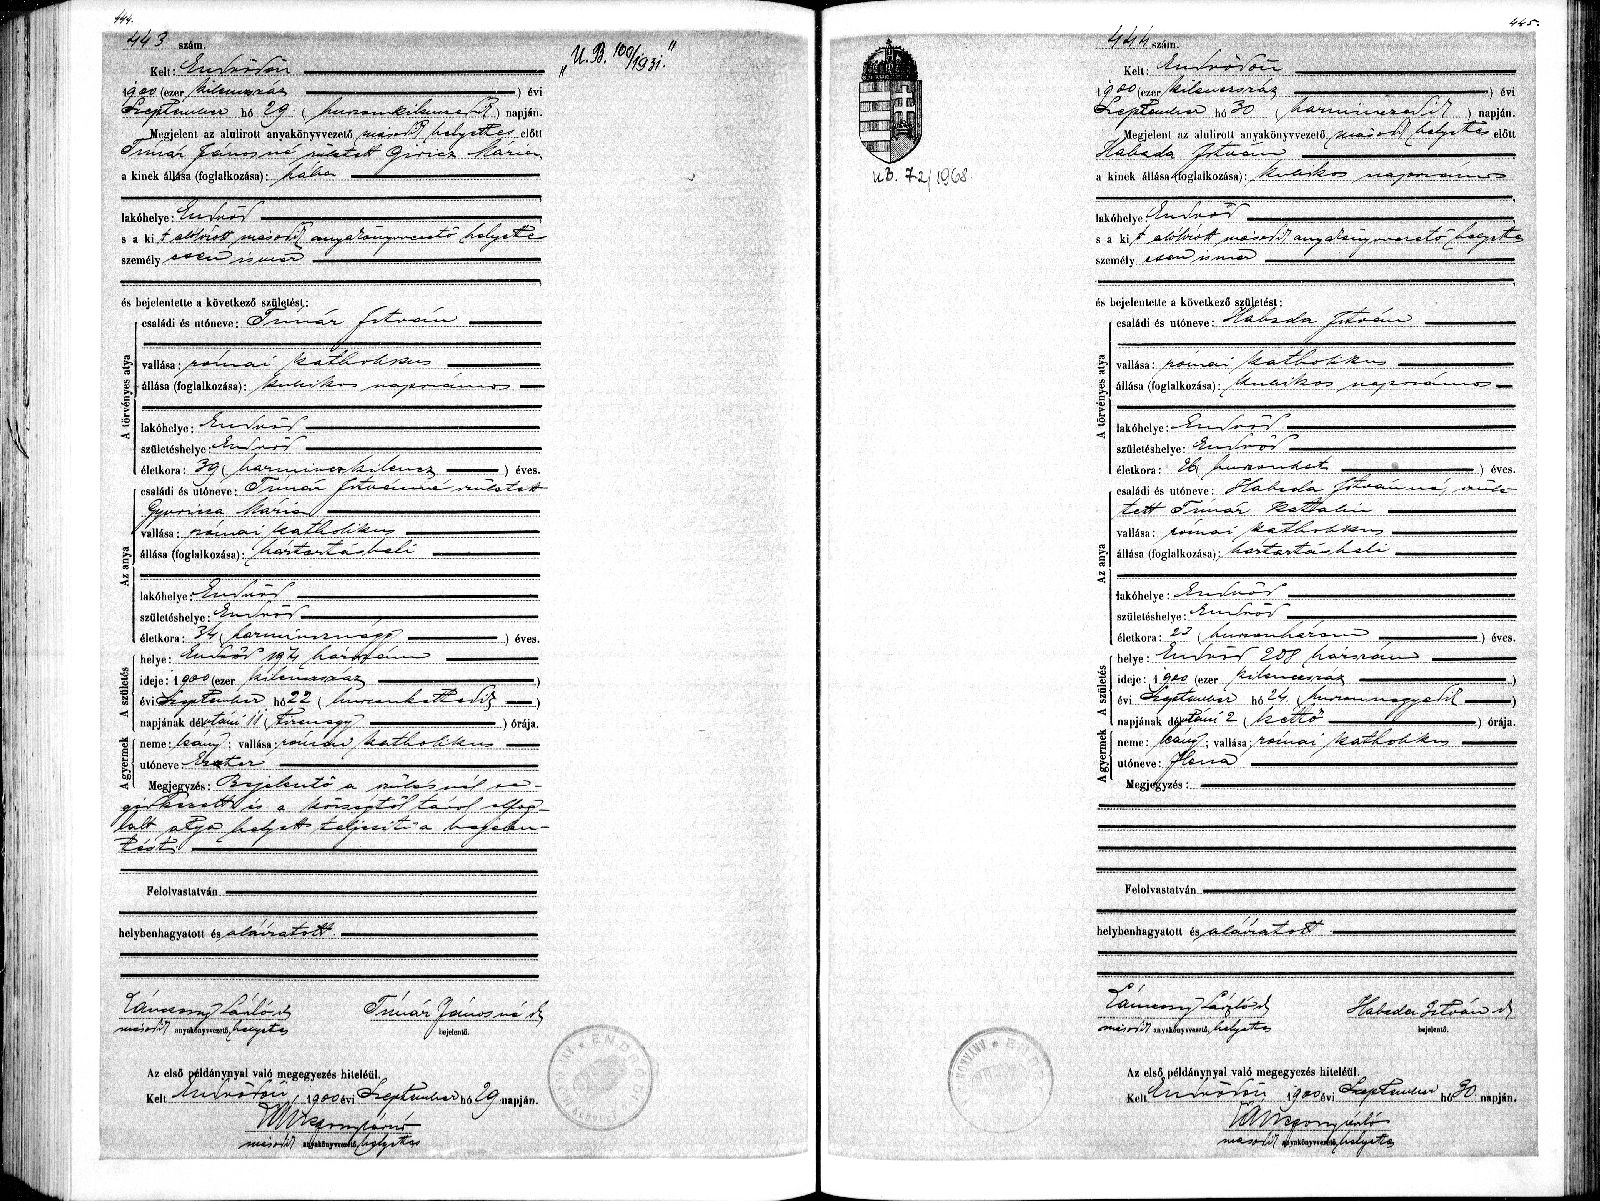 444.
443 szám.
Kelt: Endrődön
1900 (ezer kilencszáz) évi
Szeptember hó 29 (huszonkilencedik) napján.
Megjelent az alulirott anyakönyvvezető másodk helyettes előtt
Timár Jánosné született Giricz Mária
a kinek állása (foglalkozása): bába
lakóhelye: Endrőd
s a kit alólírott másodk anyakönyvvezető helyettes
személyesen ismer
és bejelentette a következő születést:
A törvényes atya
családi és utóneve: Timár István
vallása: római katholikus
állása (foglalkozása): kubikos napszámos
lakóhelye: Endrőd
születéshelye: Endrőd
életkora: 39 (harminczkilencz) éves.
Az anya
családi és utóneve: Timár Istvánné született
Gyuricza Mária
vallása: római katholikus
állása (foglalkozása): háztartásbeli
lakóhelye: Endrőd
születéshelye: Endrőd
életkora: 34 (harmincznégy) éves.
A születés
helye: Endrőd 1971 házszám
ideje: 1900 (ezer kilencszáz)
évi Szeptember hó 22 (huszonkettedik)
napjának délutáni 11 (tizenegy) órája.
A gyermek
neme: leány; vallása: római katholikus
utóneve Eszter
Megjegyzés: Bejelentő a szülésnél se-
gédkezett és a községtől távol elfog-
lalt atya helyett teljesíti a bejelen-
tést
Felolvastatván
helybenhagyatott és aláíratott.
László dk Timár Jánosné dk
másodk anyakönyvvezető, helyettes bejelentő.
Az első példánynyal való megegyezés hiteléül.
Kelt Endrődön, 1900 évi Szeptember hó 29 napján.
másodk anyakönyvvezető helyettes
"U.B. 100/1931."
445.
444 szám.
Kelt: Endrődön
1900 (ezer kilencszáz) évi
Szeptember hó 30 (harminczadik) napján.
Megjelent az alulirott anyakönyvvezető másodk helyettes előtt
Habada István
a kinek állása (foglalkozása): kubikos napszámos
lakóhelye: Endrőd
s a kit alólírott másodk anyakönyvvezető helyettes
személyesen ismer
és bejelentette a következő születést:
A törvényes atya
családi és utóneve: Habada István
vallása: római katholikus
állása (foglalkozása): kubikos napszámos
lakóhelye: Endrőd
születéshelye: Endrőd
életkora: 26 (huszonhat) éves.
Az anya
családi és utóneve: Habada Istvánné, szüle-
tett Timár Katalin
vallása: római katholikus
állása (foglalkozása): háztartásbeli
lakóhelye: Endrőd
születéshelye: Endrőd
életkora: 23 (huszonhárom) éves.
A születés
helye: Endrőd 208 házszám
ideje: 1900 (ezer kilencszáz)
évi Szeptember hó 24 (huszonnegyedik)
napjának délutáni 2 (kettő) órája.
A gyermek
neme: leány; vallása: római katholikus
utóneve: Ilona
Megjegyzés:
Felolvastatván
helybenhagyatott és aláíratott
László dk Habada István dk
másodk anyakönyvvezető, helyettes bejelentő.
Az első példánynyal való megegyezés hiteléül.
Kelt Endrődön 1900 évi Szeptember hó 30 napján.
másodk anyakönyvvezető, helyettes
U.B. 72/1968.